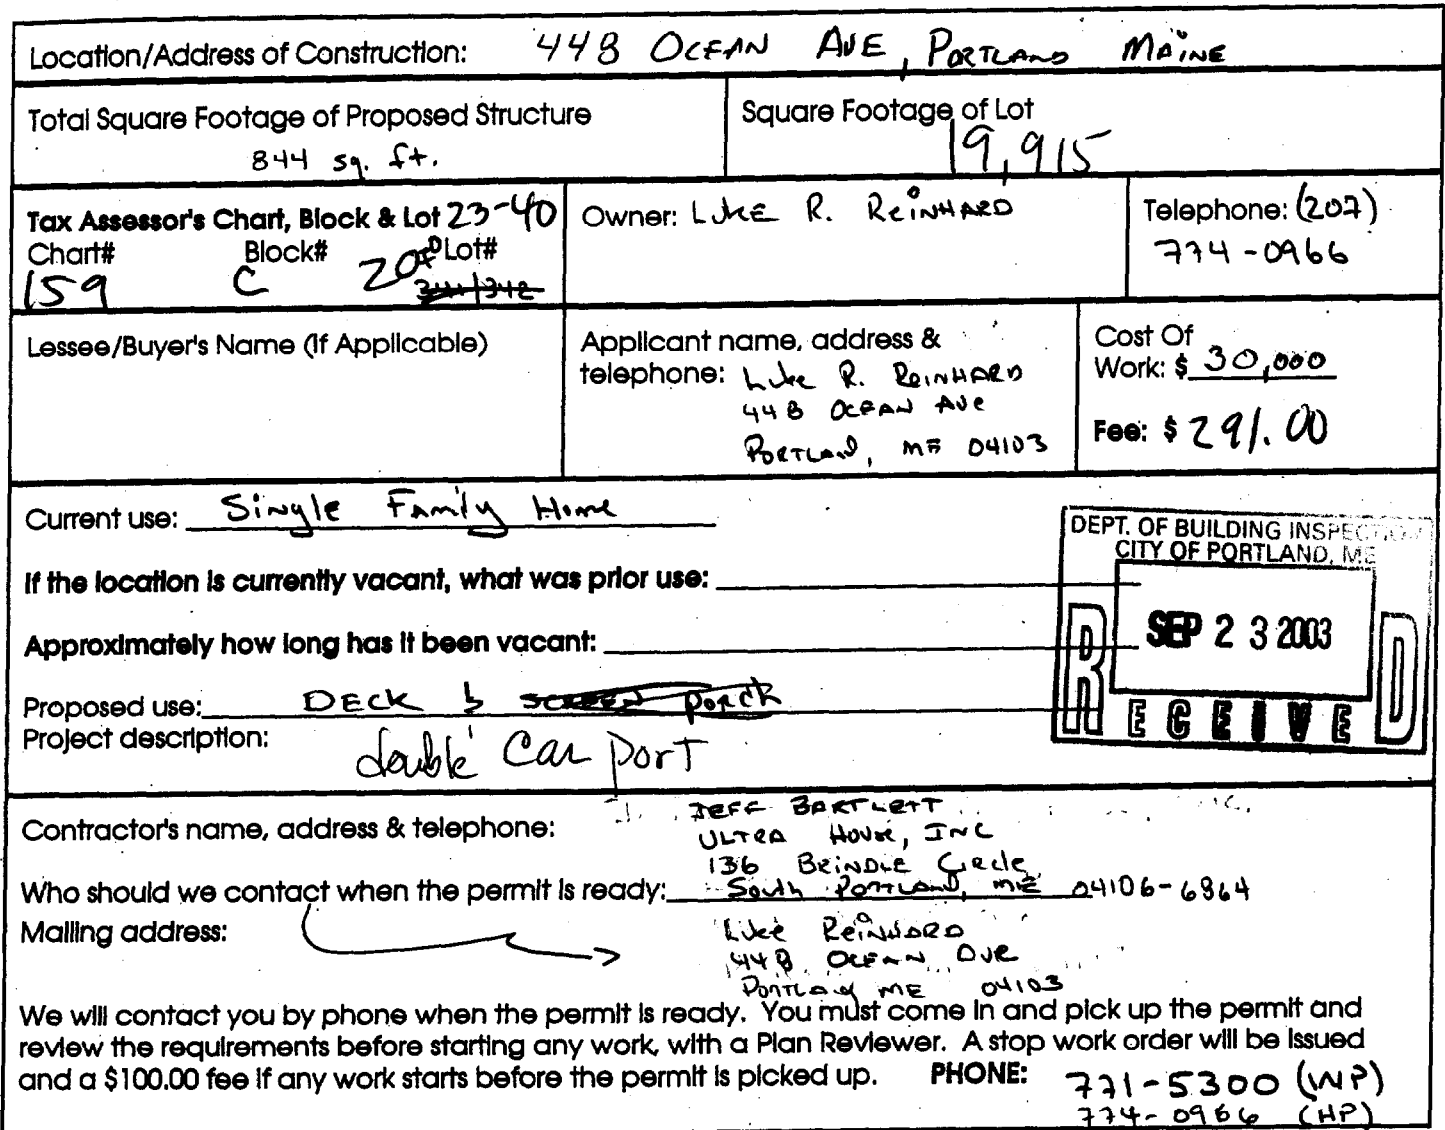 Location/Address of Construction: 448 OCEAN AVE, PORTLAND MAINE
Total Square Footage of Proposed Structure
844 sq. ft.
Square Footage of Lot
19,915
Tax Assessor's Chart, Block & Lot 23-40
Chart# Block# Lot#
159 C 20
Owner: LUKE R. REINHARD
Telephone: (207)
774-0966
Lessee/Buyer's Name (If Applicable)
Applicant name, address &
telephone: Luke R. REINHARD
448 OCEAN AVE
PORTLAND, ME 04103
Cost Of
Work: $ 30,000
Fee: $ 291.00
Current use: Single Family Home
If the location is currently vacant, what was prior use:
Approximately how long has it been vacant:
Proposed use: DECK & SCREEN PORCH
Project description: double Car port
DEPT. OF BUILDING INSPECTION
CITY OF PORTLAND, ME
SEP 2 3 2003
RECEIVED
Contractor's name, address & telephone: JEFF BARTLETT
ULTRA House, INC
136 BRINDLE Circle
Who should we contact when the permit is ready: South PORTLAND, ME 04106-6864
Mailing address: Luke REINHARD
448 OCEAN AVE
PORTLAND ME 04103
We will contact you by phone when the permit is ready. You must come in and pick up the permit and
review the requirements before starting any work, with a Plan Reviewer. A stop work order will be issued
and a $100.00 fee if any work starts before the permit is picked up. PHONE: 771-5300 (WP)
774-0966 (HP)